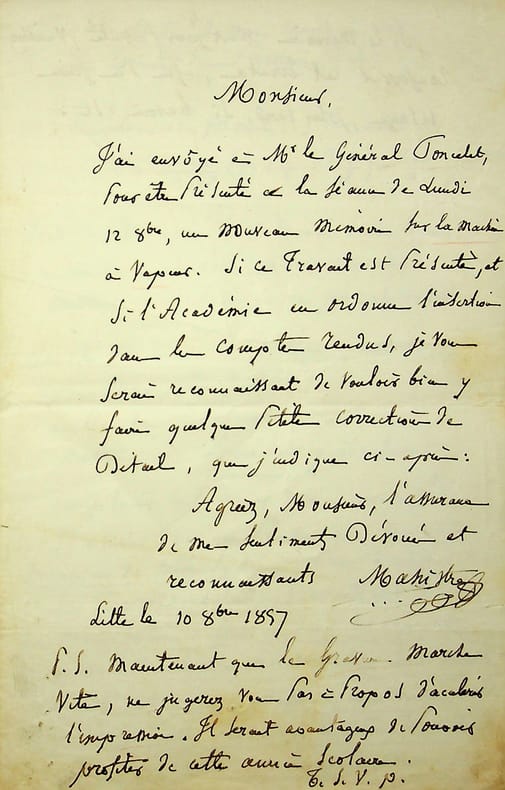 Monsieur,
J'ai envoyé à Mr le Général Poncelet,
pour être présenté à la séance de Lundi
12 8bre, un nouveau Mémoire sur la machine
à Vapeur. Si ce Travail est présenté, et
si l'Académie en ordonne l'insertion
dans les Comptes rendus, je vous
serais reconnaissant de vouloir bien y
faire quelques petites corrections de
Détail, que j'indique ci-après :
Agréez, Monsieur, l'assurance
de mes sentiments Dévoués et
reconnaissants Mahistre
Lille le 10 8bre 1857
P.S. Maintenant que le graveur marche
vite, ne jugerez vous pas à propos d'accélérer
l'impression. Il serait avantageux de pouvoir
profiter de cette année scolaire.
T. S. V. p.